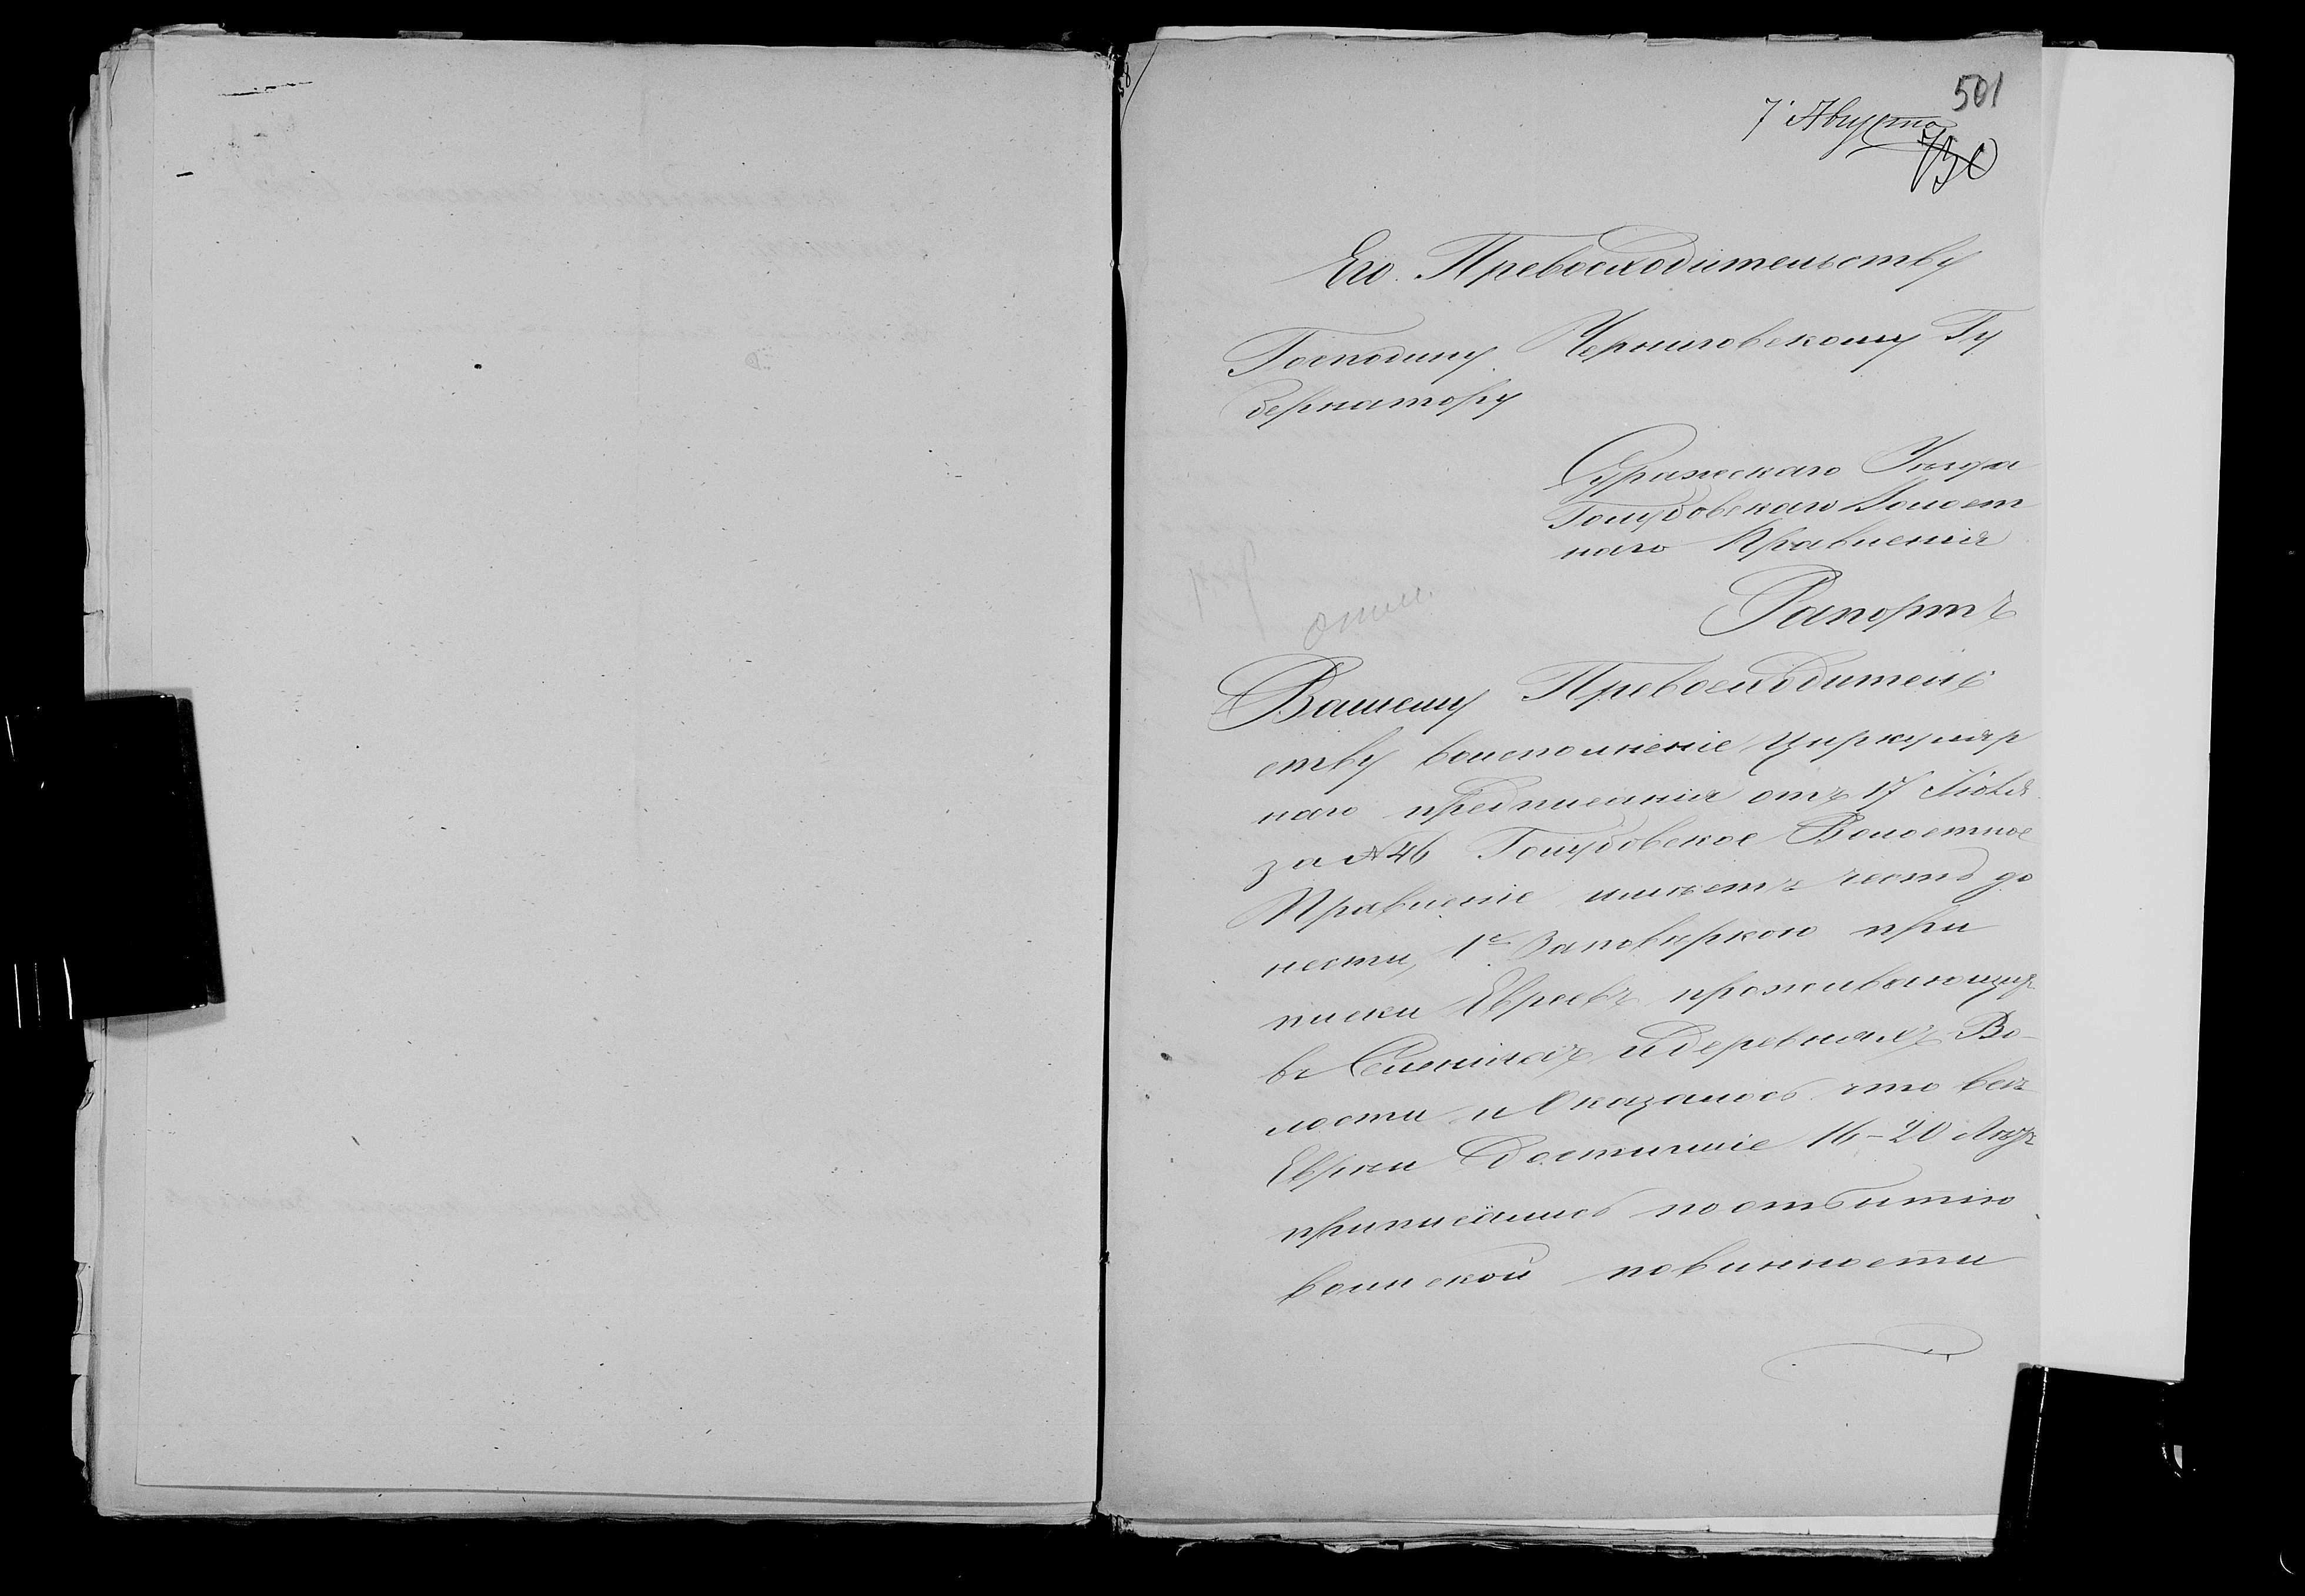 501
7 Августа
730
Его Превосходительству
Господину Черниговскому Гу
бернатору
Суражскаго Уѣзда
Голубовскаго Волост
наго Правленія
Рапортъ
Вашему Превосходитель
ству воисполненіе циркуляр
наго предписанія отъ 17 Іюля
за № 46 Голубовское Волостное
Правленіе имѣетъ честь до
нести, 1е Заповѣркою при
писки Евреевъ проживающихъ
въ Селеніяхъ идеревняхъ Во-
лости и Оказалось что всѣ
Евреи Достигшіе 16-20 Лѣтъ
приписались поотбитію
воинской повинности